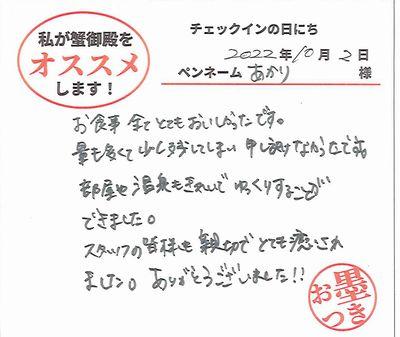 私が蟹御殿を
オススメ
します！
チェックインの日にち
2022年10月2日
ペンネーム あかり 様
お食事 全てとてもおいしかったです。
量も多くて少し残してしまい申し訳なかったです。
部屋も温泉もきれいでゆっくりすることが
できました。
スタッフの皆様も親切でとても癒され
ました。ありがとうございました!!
お墨つき